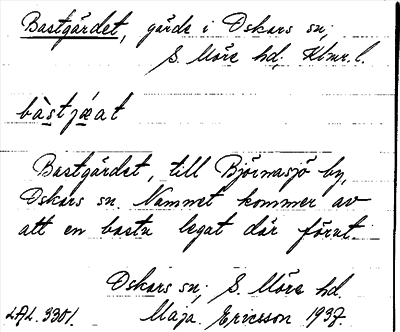 Bastgärdet, gärde i Oskars sn,
S. Möre hd, Klmr. l.
bàstjǽat
Bastgärdet, till Björnasjö by,
Oskars sn. Namnet kommer av
att en bastu legat där förut.
Oskars sn, S. Möre hd.
LAL. 3301. Maja Ericsson 1937.